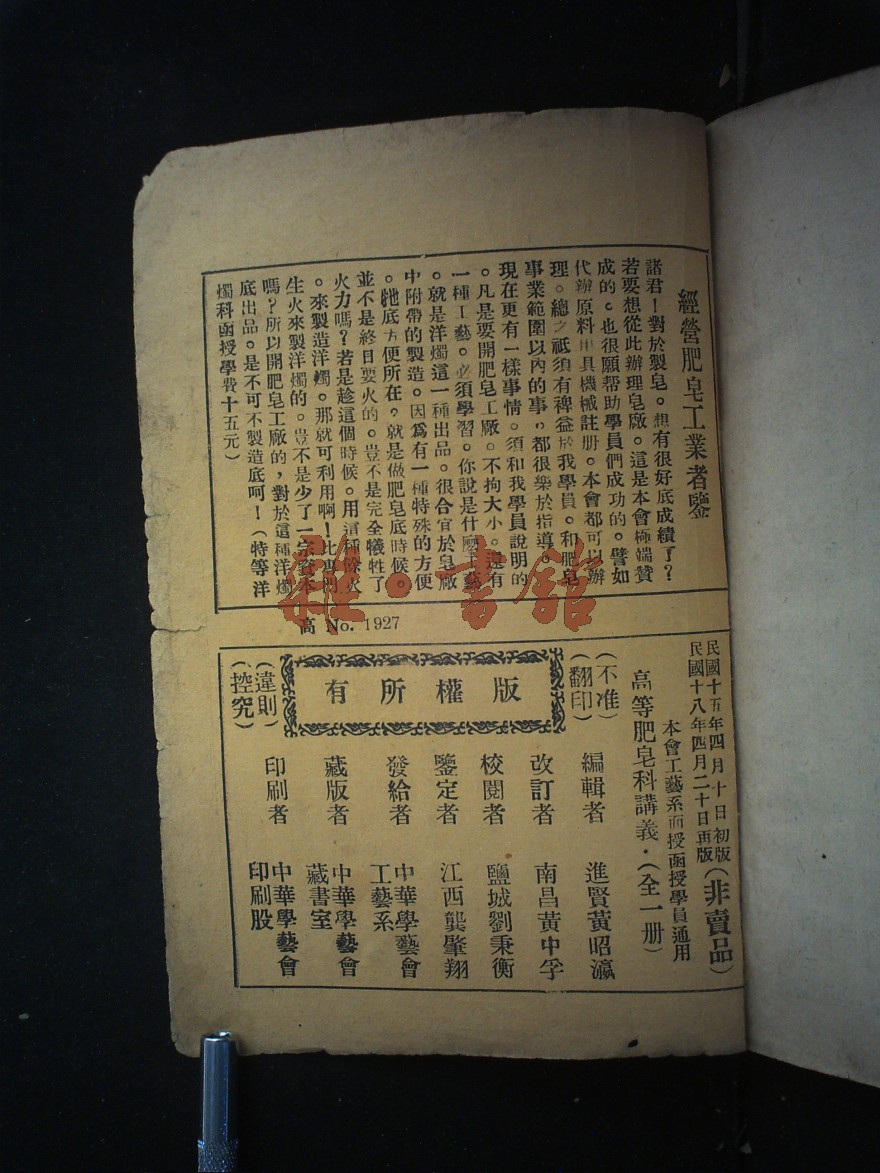 經營肥皂工業者鑒
諸君!對於製皂。想有很好底成績了?
若要想從此辦理皂廠。這是本會極端贊
成的。也很願帮助學員們成功的。譬如
代辦原料用具機械註册。本會都可以辦
理。總之祇須有裨益於我學員。和肥皂
事業範圍以內的事,都很樂於指導
現在更有一樣事情。須和我學員說明的
。凡是要開肥皂工廠。不拘大小。還有
一種工藝。必須學習。你說是什麼工藝
。就是洋燭這一種出品。很合宜於皂廠
中附帶的製造。因爲有一種特殊的方便
。牠底方便所在?就是做肥皂底時候。
並不是終日要火的。豈不是完全犧牲了
火力嗎?若是趁這個時候。用這種餘火
。來製造洋燭。那就可利用啊!比專門
生火來製洋燭的。豈不是少了一宗資本
嗎?所以開肥皂工廠的,對於這種洋燭
底出品。是不可不製造底呵!(特等洋
燭科函授學費十五元)
高 No. 1927
民國十五年四月十日初版
民國十八年四月二十日再版
(非賣品)
本會工藝系面授函授學員通用
高等肥皂科講義.(全一册)
(不准翻印)
版權所有
(違則控究)
編輯者 進賢黃昭瀛
改訂者 南昌黃中孚
校閱者 鹽城劉秉衡
鑒定者 江西龔肇翔
發給者 中華學藝會工藝系
藏版者 中華學藝會藏書室
印刷者 中華學藝會印刷股
雜·書館